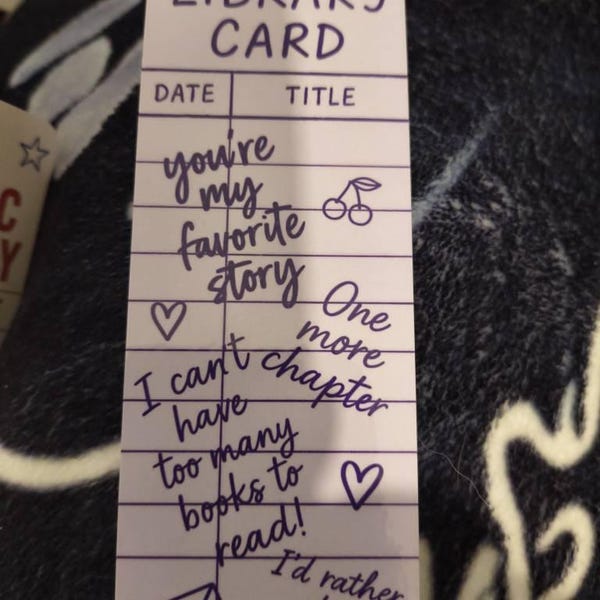 LIBRARY
CARD
DATE TITLE
you're
my
favorite
story
One
more
chapter
I can't
have
too many
books to
read!
I'd rather
C
Y